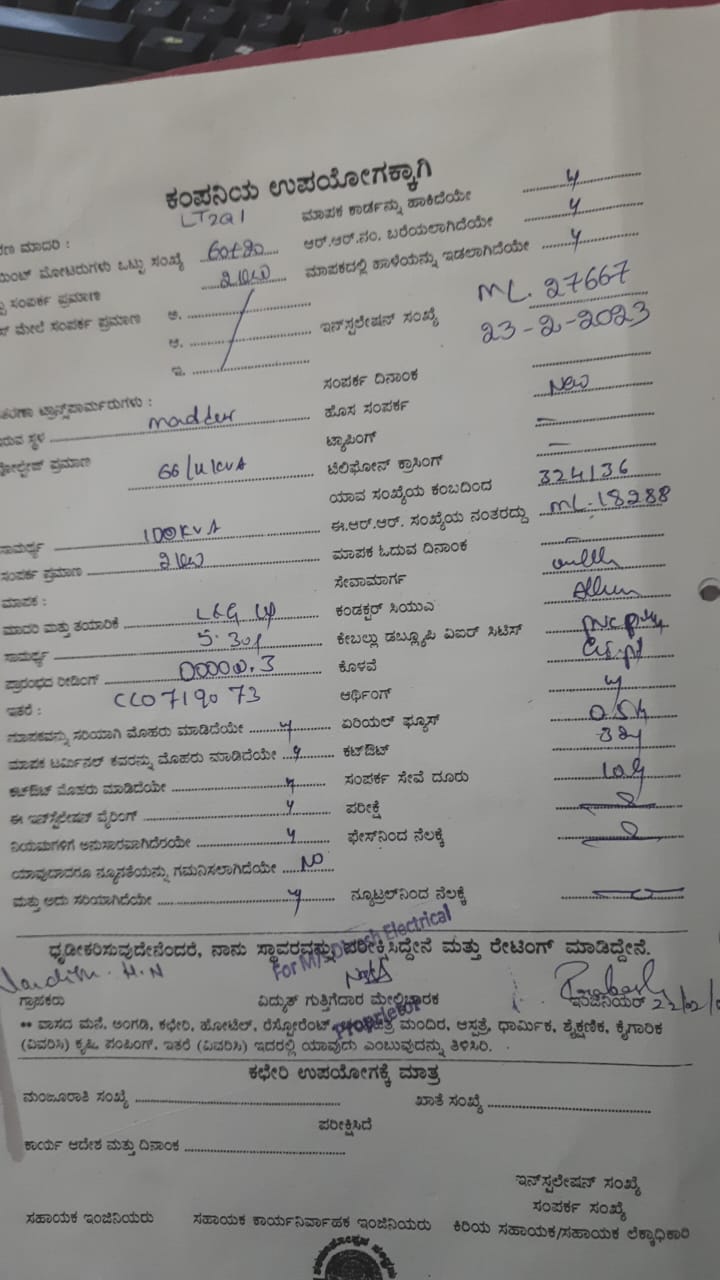 ಕಂಪನಿಯ ಉಪಯೋಗಕ್ಕಾಗಿ
LT2a1 ಮಾಪಕ ಕಾರ್ಡನ್ನು ಹಾಕಿದೆಯೇ y
ರಣ ಮಾದರಿ : ಆರ್.ಆರ್.ನಂ. ಬರೆಯಲಾಗಿದೆಯೇ y
ಯಿಂಟ್ ಮೋಟರುಗಳು ಒಟ್ಟು ಸಂಖ್ಯೆ ಮಾಪಕದಲ್ಲಿ ಹಾಳೆಯನ್ನು ಇಡಲಾಗಿದೆಯೇ y
ಸಂಪರ್ಕ ಪ್ರಮಾಣ 2 kw
ಮೇಲೆ ಸಂಪರ್ಕ ಪ್ರಮಾಣ ಅ. ML. 27667
ಆ. ಇನ್‌ಸ್ಟಲೇಷನ್ ಸಂಖ್ಯೆ 23-2-2023
ಇ.
ಸಂಪರ್ಕ ದಿನಾಂಕ
ಟ್ರಾನ್ಸ್‌ಫಾರ್ಮರುಗಳು : ಹೊಸ ಸಂಪರ್ಕ New
ರುವ ಸ್ಥಳ ಟ್ಯಾಪಿಂಗ್ –
ವೋಲ್ಟೇಜ್ ಪ್ರಮಾಣ ಟೆಲಿಫೋನ್ ಕ್ರಾಸಿಂಗ್ –
ಯಾವ ಸಂಖ್ಯೆಯ ಕಂಬದಿಂದ 324136
ಸಾಮರ್ಥ್ಯ 100KVA ಈ.ಆರ್.ಆರ್. ಸಂಖ್ಯೆಯ ನಂತರದ್ದು ML.18288
ಸಂಪರ್ಕ ಪ್ರಮಾಣ 2 kw ಮಾಪಕ ಓದುವ ದಿನಾಂಕ –
ಮಾಪಕ : ಸೇವಾಮಾರ್ಗ
ಮಾದರಿ ಮತ್ತು ತಯಾರಿಕೆ ಕಂಡಕ್ಟರ್ ಸಿಯುಎ
ಸಾಮರ್ಥ್ಯ ಕೇಬಲ್ಲು ಡಬ್ಲ್ಯೂಪಿ ವಿಐರ್ ಸಿಟಿಸ್
ಪ್ರಾರಂಭದ ರೀಡಿಂಗ್ 00000.3 ಕೊಳವೆ
ಇತರೆ : CC07190 73 ಅರ್ಥಿಂಗ್ y
ಮಾಪಕವನ್ನು ಸರಿಯಾಗಿ ಮೊಹರು ಮಾಡಿದೆಯೇ y ಏರಿಯಲ್ ಫ್ಯೂಸ್
ಮಾಪಕ ಟರ್ಮಿನಲ್ ಕವರನ್ನು ಮೊಹರು ಮಾಡಿದೆಯೇ y ಕಟ್‌ಔಟ್
ಕಟ್‌ಔಟ್ ಮೊಹರು ಮಾಡಿದೆಯೇ y ಸಂಪರ್ಕ ಸೇವೆ ದೂರು
ಈ ಇನ್‌ಸ್ಟಲೇಷನ್ ವೈರಿಂಗ್ y ಪರೀಕ್ಷೆ
ನಿಯಮಗಳಿಗೆ ಅನುಸಾರವಾಗಿದೆಯೇ y ಫೇಸ್‌ನಿಂದ ನೆಲಕ್ಕೆ
ಯಾವುದಾದರೂ ನ್ಯೂನತೆಯನ್ನು ಗಮನಿಸಲಾಗಿದೆಯೇ NO
ಮತ್ತು ಅದು ಸರಿಯಾಗಿದೆಯೇ y ನ್ಯೂಟ್ರಲ್‌ನಿಂದ ನೆಲಕ್ಕೆ
ಧೃಢೀಕರಿಸುವುದೇನೆಂದರೆ, ನಾನು ಸ್ಥಾವರವನ್ನು ಪರೀಕ್ಷಿಸಿದ್ದೇನೆ ಮತ್ತು ರೇಟಿಂಗ್ ಮಾಡಿದ್ದೇನೆ.
For M/s Electrical
Proprietor
ಗ್ರಾಹಕರು ವಿದ್ಯುತ್ ಗುತ್ತಿಗೆದಾರ ಮೇಲ್ವಿಚಾರಕ ಇಂಜಿನಿಯರ್
** ವಾಸದ ಮನೆ, ಅಂಗಡಿ, ಕಛೇರಿ, ಹೋಟೆಲ್, ರೆಸ್ಟೋರೆಂಟ್ ಮಂದಿರ, ಆಸ್ಪತ್ರೆ, ಧಾರ್ಮಿಕ, ಶೈಕ್ಷಣಿಕ, ಕೈಗಾರಿಕ
(ವಿವರಿಸಿ) ಕೃಷಿ, ಪಂಪಿಂಗ್, ಇತರೆ (ವಿವರಿಸಿ) ಇದರಲ್ಲಿ ಯಾವುದು ಎಂಬುವುದನ್ನು ತಿಳಿಸಿರಿ.
ಕಛೇರಿ ಉಪಯೋಗಕ್ಕೆ ಮಾತ್ರ
ಮಂಜೂರಾತಿ ಸಂಖ್ಯೆ ಖಾತೆ ಸಂಖ್ಯೆ
ಪರೀಕ್ಷಿಸಿದೆ
ಕಾರ್ಯ ಆದೇಶ ಮತ್ತು ದಿನಾಂಕ
ಇನ್‌ಸ್ಟಲೇಷನ್ ಸಂಖ್ಯೆ
ಸಂಪರ್ಕ ಸಂಖ್ಯೆ
ಸಹಾಯಕ ಇಂಜಿನಿಯರು ಸಹಾಯಕ ಕಾರ್ಯನಿರ್ವಾಹಕ ಇಂಜಿನಿಯರು ಕಿರಿಯ ಸಹಾಯಕ/ಸಹಾಯಕ ಲೆಕ್ಕಾಧಿಕಾರಿ